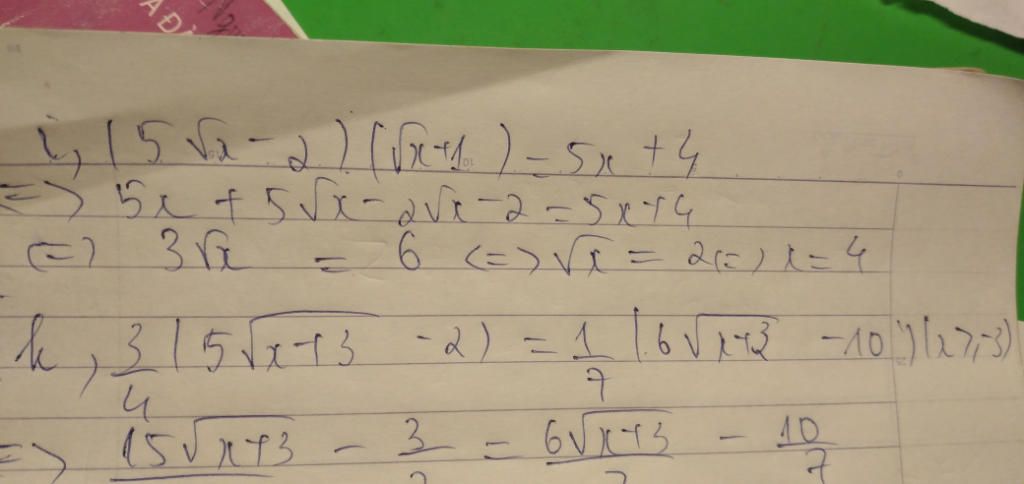 i, (5√x - 2)(√x+1) = 5x + 4
<=> 5x + 5√x - 2√x - 2 = 5x+4
<=> 3√x = 6 <=> √x = 2 <=> x = 4
k, 3/4 (5√(x+3) - 2) = 1/7 (6√(x+3) - 10) (x ≥ -3)
=> 15√(x+3) - 3 = 6√(x+3) - 10/7